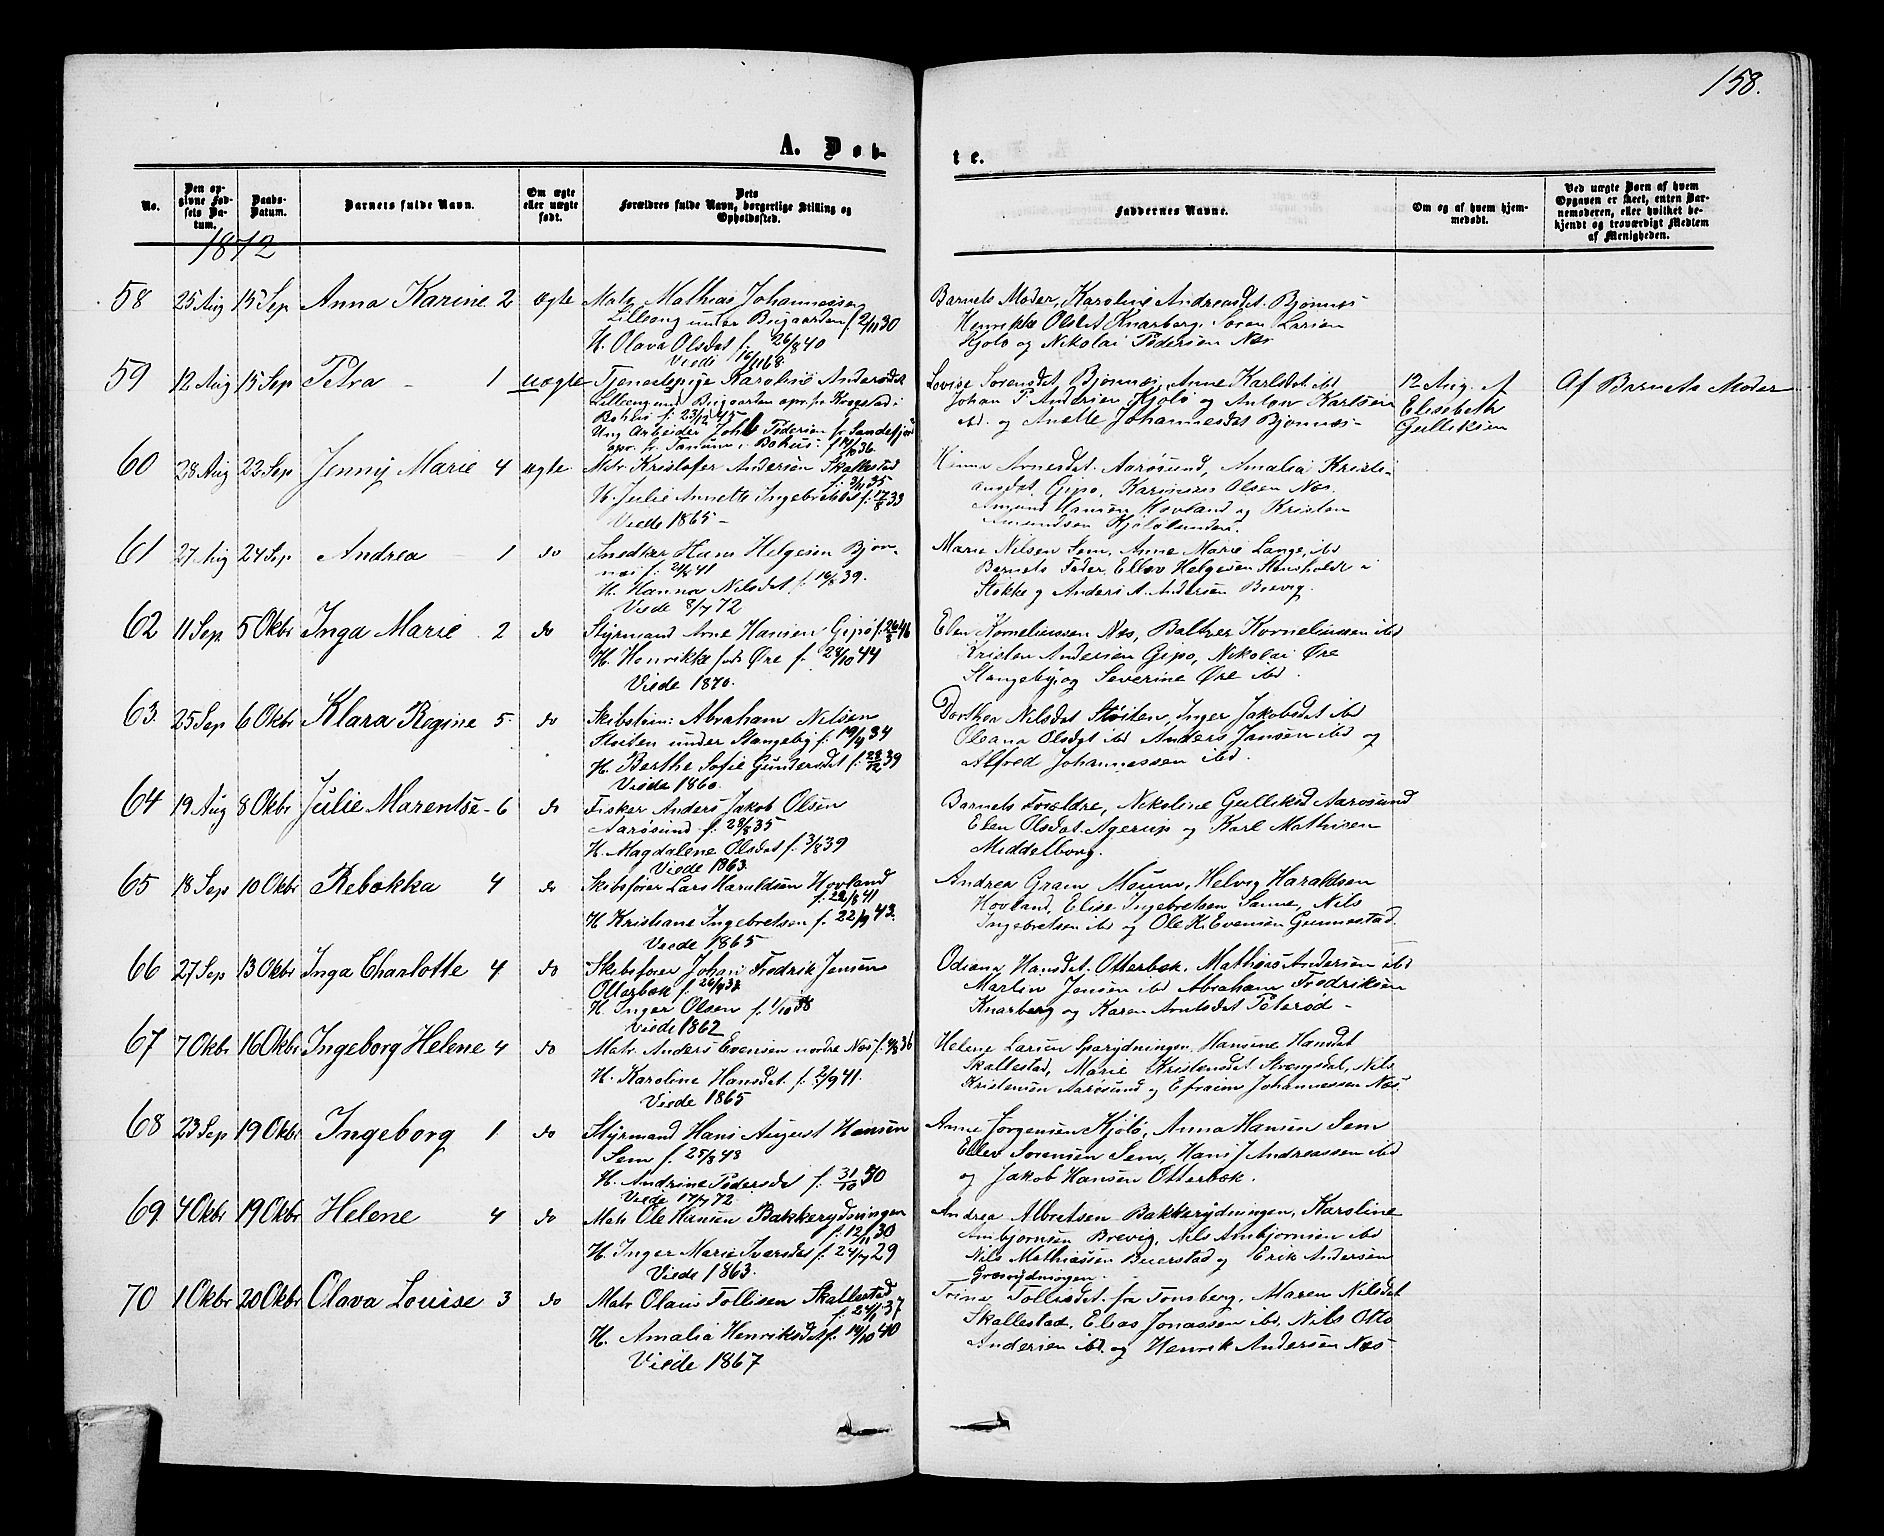 158.
A. Døb-
te.
No.
Den op-
givne Fød-
sels Da-
tum.
Daabs-
Datum.
Barnets fulde Navn.
Om ægte
eller uægte
født.
Dets
Forældres fulde Navn, borgerlige Stilling og
Opholdssted.
Faddernes Navne.
Om og af hvem hjem-
medøbt.
Ved uægte Børn af hvem
Opgaven er skeet, enten Bar-
nemoderen, eller hvilket be-
kjendt og troværdigt Medlem
af Menigheden.
1872
58 25 Aug 15 Sep Anna Karine 2 ægte Matr. Mathias Johannessen
Lilleeng under Beigaarden f. 2/11 30
H. Olava Olsdat f. 26/8 40
Viede 16/1 68
Barnets Moder, Karoline Andreasdat. Bjønnes
Henrikke Olsdat Knarberg. Søren Larsen
Kjølø og Nikolai Pedersen Næs
59 12 Aug 15 Sep Petra - 1 uægte Tjenestepige Karoline Andersdat
Lilleeng und. Beigaarden opr. fr. Krogstad i
Bohus f. 23/12 45
Ung Arbeider Joh. Pedersen fr. Sandefjor
opr. fr. Tanum i Bohus f. 19/10 36.
Lovise Sørensdat Bjønnes, Anne Karlsdat ibd
Johan P. Andersen Kjølø og Anton Karlsen
ibd. og Anette Johannesdat Bjønnæs-
12 Aug. af
Elisabeth
Gulliksen
Af Barnets Moder
60 28 Aug 22 Sep Jenny Marie 4 ægte Matr. Kristofer Andersen Skallestad
f. 3/11 35
H. Julie Annette Ingebretsdat f. 17/8 39
Viede 1865 -
Hinna Arnesdat. Aarøsund, Amalia Kristi-
ansdat. Gipø, Karinius Olsen Næs.
Amund Hansen Hovland og Kristen
Amundsen Kjøløsundet.
61 27 Aug 24 Sep Andrea - 1 do Snedker Hans Helgesen Bjøn-
næs f. 20/5 41
H. Hanna Nilsdat f. 16/8 39.
Viede 8/7 72
Marie Nilsen Sem, Anne Marie Lange, ibd
Barnets Fader, Ellev Helgesen Stensholdt i
Stokke og Anders A. Andersen Brevig.
62 11 Sep 5 Okbr Inga Marie . 2 do Styrmand Arne Hansen Gipø f. 26/8 46
H. Henrikke født Øre f. 28/10 44
Viede 1870.
Elen Korneliussen Næs, Baltser Korneliussen ibd
Kristen Andersen Gipø, Nikolai Øre
Stangeby, og Severine Øre ibd.
63. 25 Sep 6 Okbr Klara Regine 5. do Skibstøm: Abraham Nilsen
Støiten under Stangeby f. 19/9 34
H. Berthe Sofie Gundersdat f. 28/12 39
Viede 1860.
Dorthea Nilsdat Støiten, Inger Jakobsdat ibd
Oleana Olsdat ibd Anders Jansen ibd og
Alfred Johannessen ibd.
64 19 Aug 8 Okbr Julie Marentse - 6 do Fisker Anders Jakob Olsen
Aarøsund f. 28/8 35
H. Magdalene Olsdat f. 3/8 39
Viede 1863.
Barnets Forældre, Nikoline Gulliksd Aarøsund
Elen Olsdat. Agerup og Karl Mathisen
Middelborg.
65 18 Sep 10 Okbr Rebekka 4 do Skibsfører Lars Haraldsen Hovland
f. 22/8 41
H. Kristiane Ingebretsen f. 22/9 43.
Viede 1865
Andrea Gram Moum, Helvig Haraldsen
Hovland, Elise Ingebretsen Sanne, Nils
Ingebretsen ibd og Ole K. Evensen Gunnestad.
66 27 Sep 13 Okbr Inga Charlotte 4 do Skibsfører Johan Fredrik Jensen
Otterbæk f. 26/9 32
H. Inger Olsen f. 1/10 38
Viede 1862
Odiana Hansdat. Otterbæk. Mathias Andersen ibd
Martin Jensen ibd Abraham Fredriksen
Knarberg og Karen Arntsdat Pelerød -
67 7 Okbr 16 Okbr Ingeborg Helene 4 do Matr. Anders Evensen nordre Næs f. 4/8 36
H. Karoline Hansdat. f. 2/9 41.
Viede 1865
Helene Larsen Græsrydningen, Hansine Hansdat
Skallestad, Marie Kristensdat Strengsdal, Nils
Kristensen Aarøsund og Efraim Johannessen Næs.
68 23 Sep 19 Okbr Ingeborg 1. do Styrmand Hans August Hansen
Sem f. 25/8 48
H. Andrine Pedersdat f. 31/10 50
Viede 17/7 72.
Anne Jørgensen Kjølø, Anna Hansen Sem
Ellev Sørensen Sem, Hans J Andreassen ibd
og Jakob Hansen Otterbæk.
69. 4 Okbr 19 Okbr Helene 4 do Matr. Ole Hansen Bakkerydningen
f. 12/11 30
H. Inger Marie Iversdat f. 24/7 29
Viede 1863.
Andrea Albretsen Bakkerydningen, Karoline
Ambjørnsen Brevig, Nils Ambjørnsen ibd
Nils Mathiassen Buerstad og Erik Andersen
Græsrydningen.
70 1 Okbr 20 Okbr Olava Louise 3 do Matr. Olaus Tollisen Skallestad
f. 24/1 37
H. Amalia Henriksdat f. 14/10 40
Viede 1867
Trine Tollisdat fra Tønsberg, Maren Nilsdat
Skallestad, Elias Jonassen ibd, Nils Otto
Andersen ibd. og Henrik Andersen Næs-